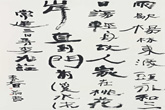 雨歇楊林東渡頭永和三
日盪輕舟故人家在桃花
岸直到門前溪水流
常建三日尋李九莊